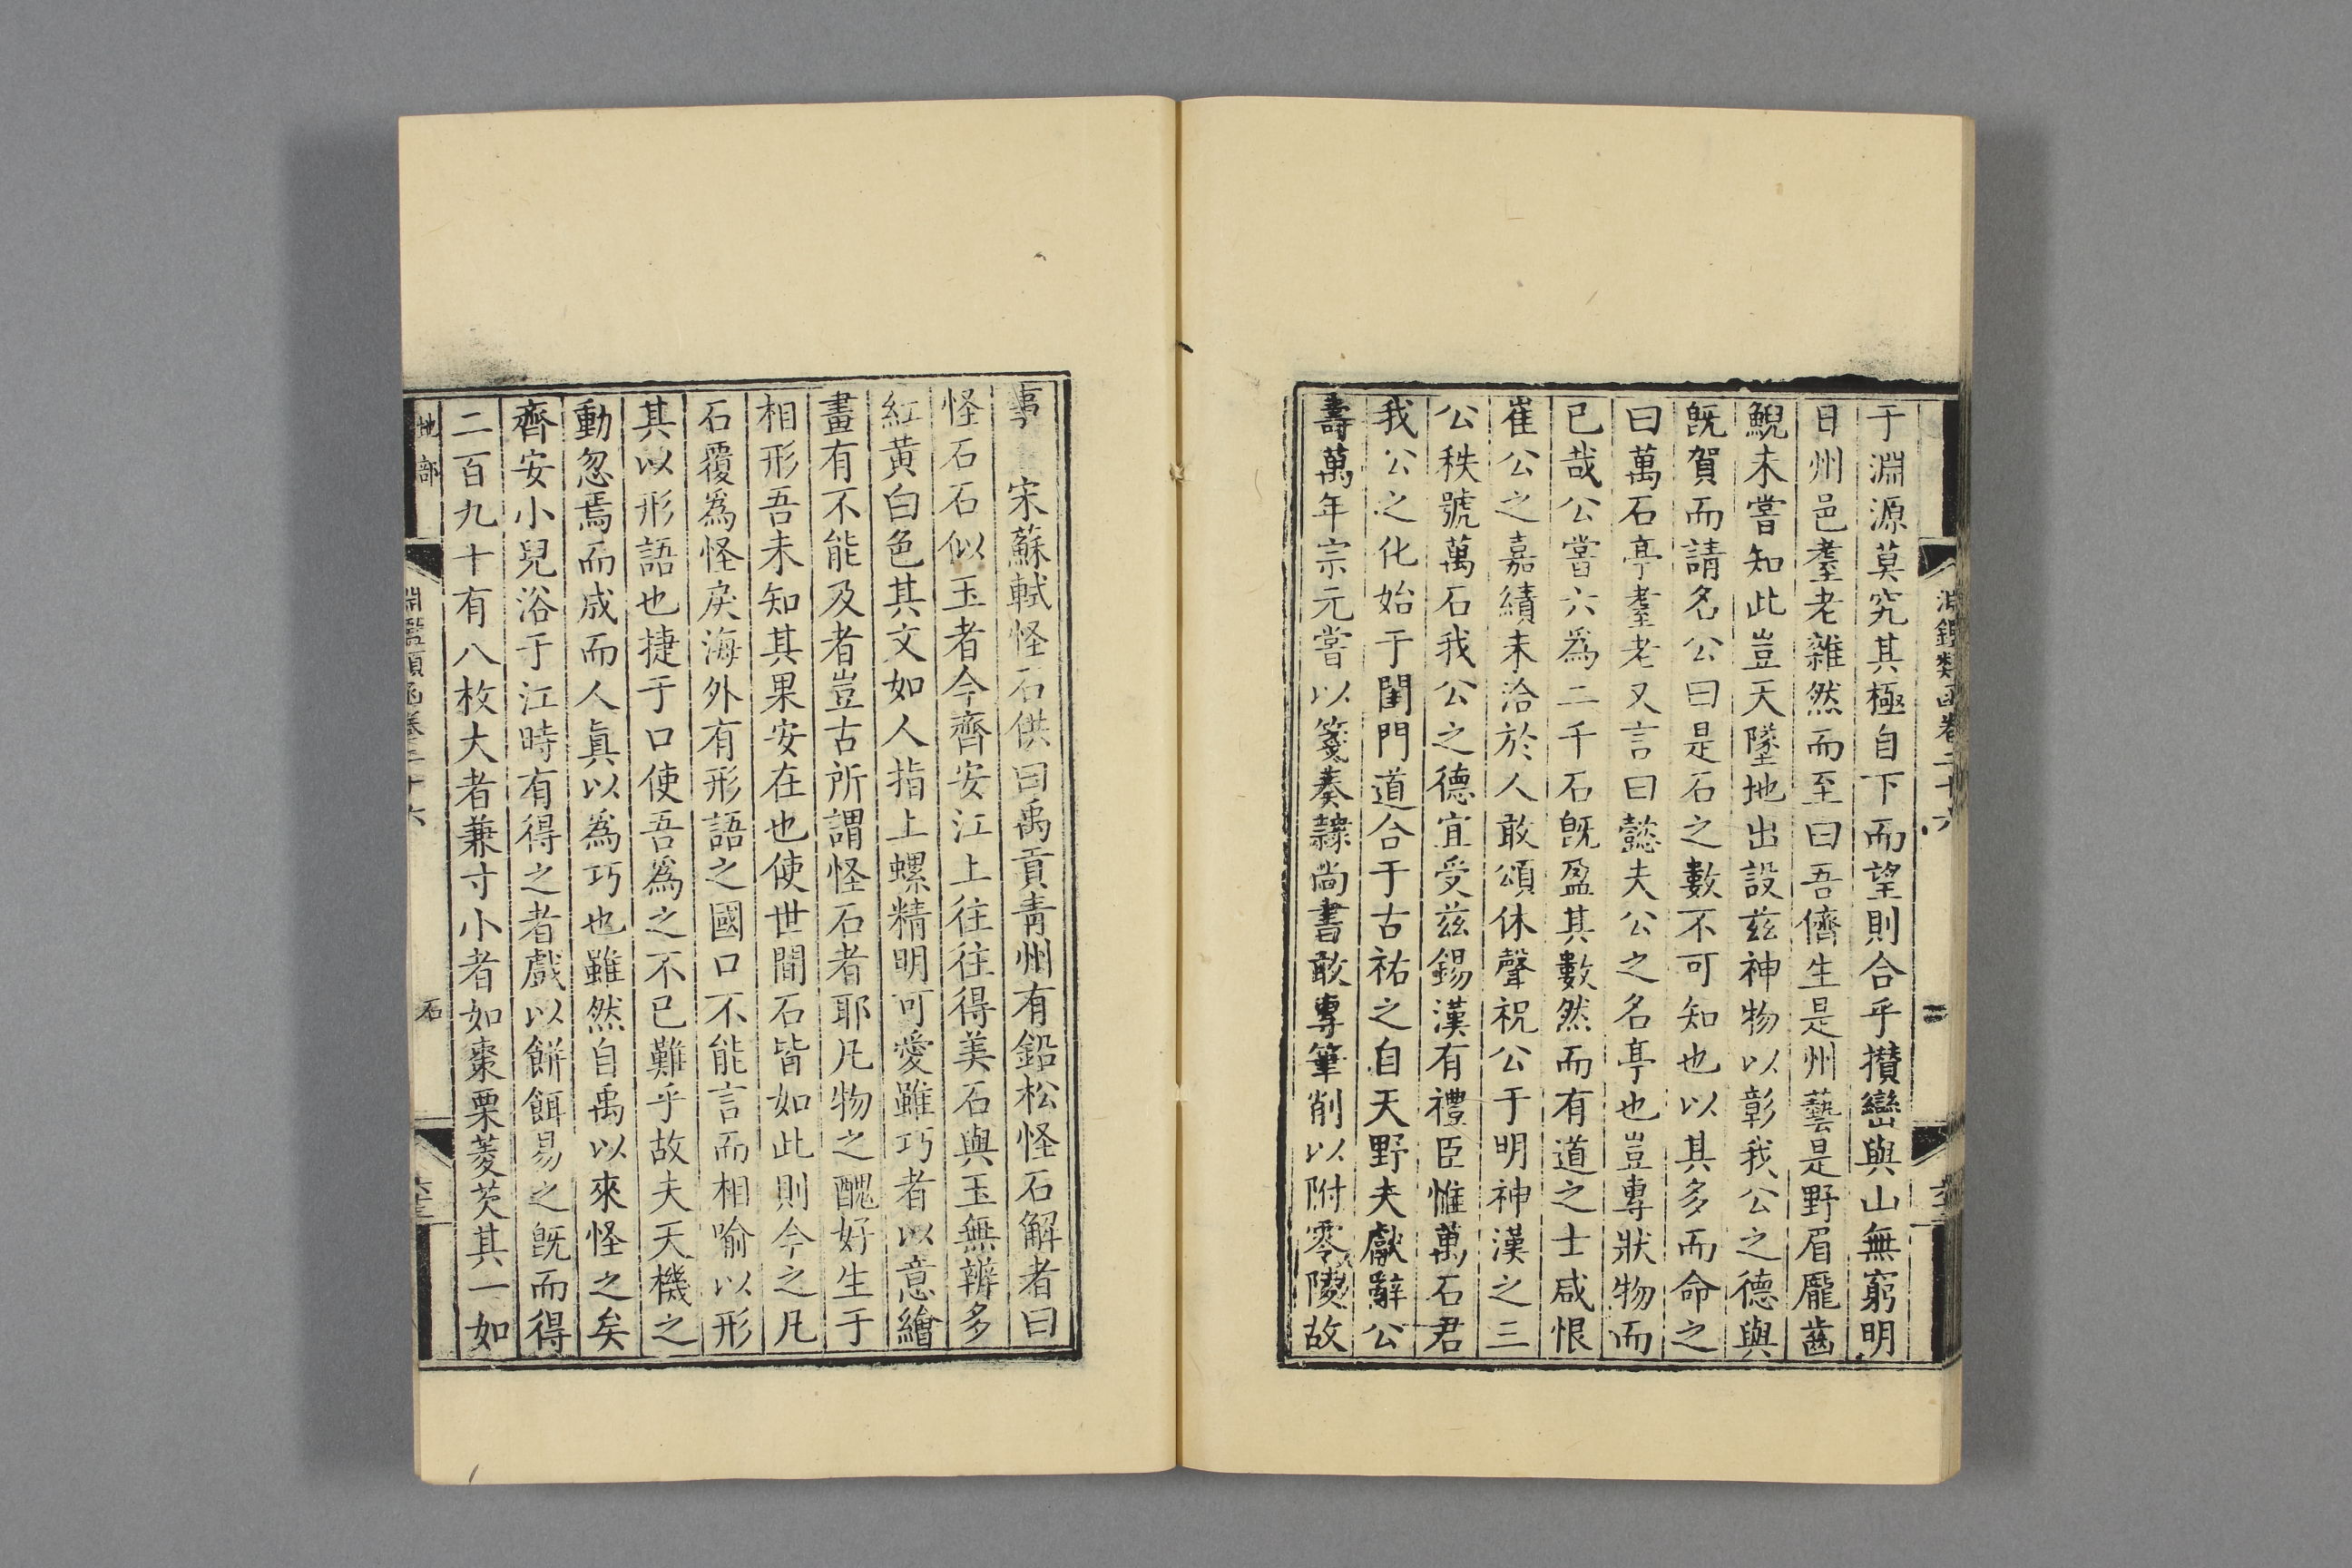 淵鑑類函卷二十六
于淵源莫究其極自下而望則合乎攢巒與山無窮明
日州邑耋老雜然而至曰吾儕生是州藝是野眉龐齒
鯢未嘗知此豈天墜地出設兹神物以彰我公之德與
旣賀而請名公曰是石之數不可知也以其多而命之
曰萬石亭耋老又言曰懿夫公之名亭也豈專狀物而
已哉公嘗六爲二千石旣盈其數然而有道之士咸恨
崔公之嘉績未洽於人敢頌休聲祝公于明神漢之三
公秩號萬石我公之德宜受兹錫漢有禮臣惟萬石君
我公之化始于閨門道合于古祐之自天野夫獻辭公
壽萬年宗元嘗以箋奏隷尚書敢專筆削以附零陵故
事 宋蘇軾怪石供曰禹貢靑州有鉛松怪石解者曰
怪石石似玉者今齊安江上往往得美石與玉無辨多
紅黃白色其文如人指上螺精明可愛雖巧者以意繪
畫有不能及者豈古所謂怪石者耶凡物之醜好生于
相形吾未知其果安在也使世間石皆如此則今之凡
石覆爲怪戾海外有形語之國口不能言而相喻以形
其以形語也捷于口使吾爲之不已難乎故夫天機之
動忽焉而成而人眞以爲巧也雖然自禹以來怪之矣
齊安小兒浴于江時有得之者戲以餅餌易之旣而得
二百九十有八枚大者兼寸小者如棗栗菱芡其一如
地部
淵鑑類函卷二十六
石